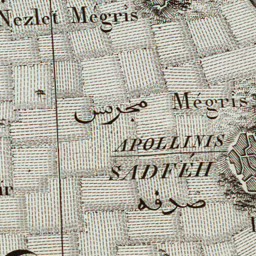 Nezlet Mégris
مجرس Mégris
APOLLINIS
SADFÉH
صدفه